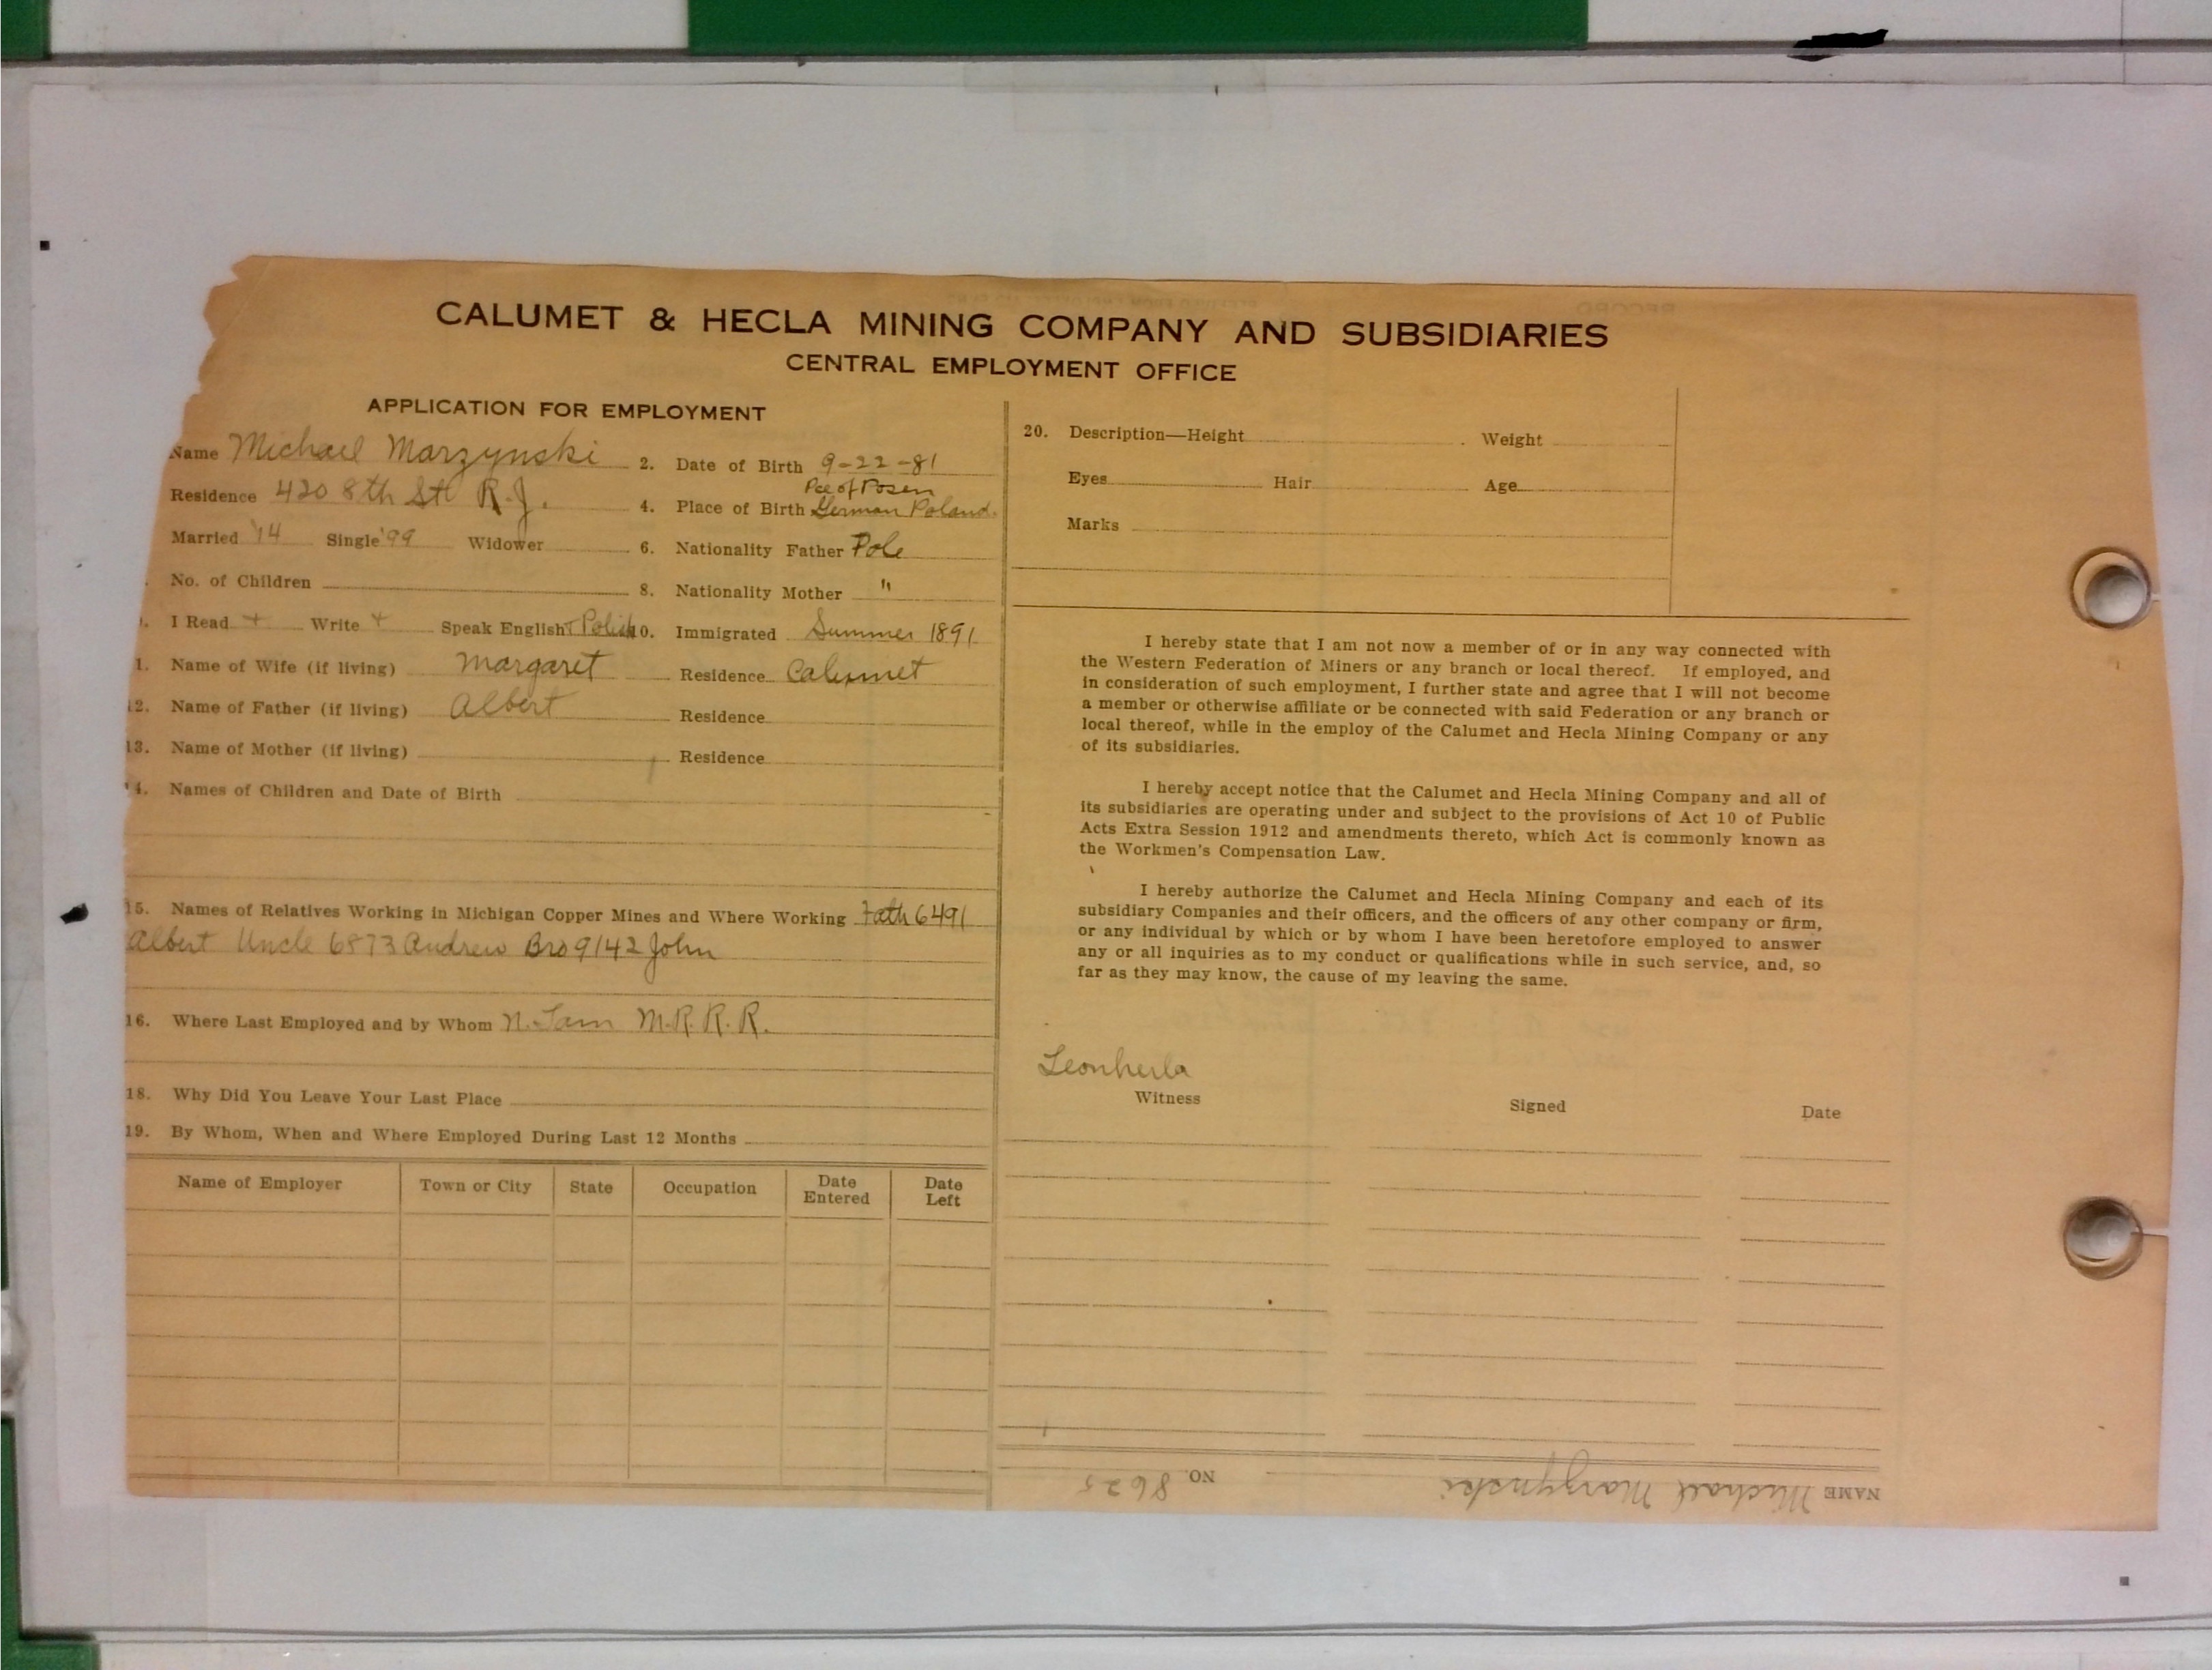 CALUMET & HECLA MINING COMPANY AND SUBSIDIARIES
CENTRAL EMPLOYMENT OFFICE
APPLICATION FOR EMPLOYMENT
Name Michael Marzynski 2. Date of Birth 9-22-81
Residence 420 8th St R.J. 4. Place of Birth Pce of Posen German Poland.
Married '14 Single '99 Widower 6. Nationality Father Pole
No. of Children 8. Nationality Mother "
I Read + Write + Speak English + Polish 10. Immigrated Summer 1891
1. Name of Wife (if living) Margaret Residence Calumet
12. Name of Father (if living) Albert Residence
13. Name of Mother (if living) Residence
14. Names of Children and Date of Birth
15. Names of Relatives Working in Michigan Copper Mines and Where Working Fath 6491
Albert Uncle 6873 Andrew Bro 9142 John
16. Where Last Employed and by Whom N. Tam M.R.R.R.
18. Why Did You Leave Your Last Place
19. By Whom, When and Where Employed During Last 12 Months
Name of Employer Town or City State Occupation Date Entered Date Left
20. Description—Height Weight
Eyes Hair Age
Marks
I hereby state that I am not now a member of or in any way connected with
the Western Federation of Miners or any branch or local thereof. If employed, and
in consideration of such employment, I further state and agree that I will not become
a member or otherwise affiliate or be connected with said Federation or any branch or
local thereof, while in the employ of the Calumet and Hecla Mining Company or any
of its subsidiaries.
I hereby accept notice that the Calumet and Hecla Mining Company and all of
its subsidiaries are operating under and subject to the provisions of Act 10 of Public
Acts Extra Session 1912 and amendments thereto, which Act is commonly known as
the Workmen's Compensation Law.
I hereby authorize the Calumet and Hecla Mining Company and each of its
subsidiary Companies and their officers, and the officers of any other company or firm,
or any individual by which or by whom I have been heretofore employed to answer
any or all inquiries as to my conduct or qualifications while in such service, and, so
far as they may know, the cause of my leaving the same.
Witness Signed Date
NAME Michael Marzynski NO. 8625